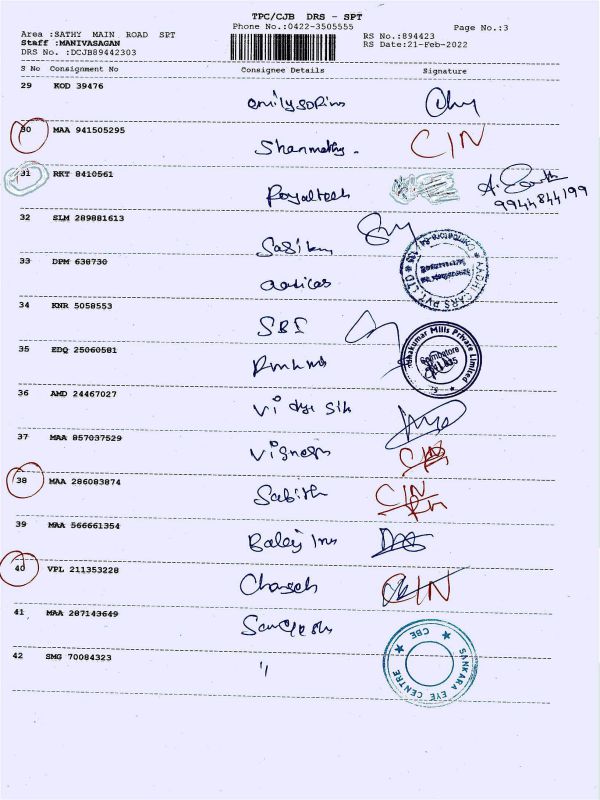 TPC/CJB DRS - SPT
Area :SATHY MAIN ROAD SPT
Phone No.:0422-3505555
Page No.:3
Staff :MANIVASAGAN
RS No.:894423
DRS No. :DCJB89442303
RS Date:21-Feb-2022
S No Consignment No Consignee Details Signature
29 KOD 39476
30 MAA 941505295 Shanmathy. CIN
31 RKT 8410561 Royaltech
9944844199
32 SLM 289881613 Sasikum
33 DPM 638730
AADHI CARS PVT. LTD
34 KNR 5058553 SBI
35 EDQ 25060581
Mills Private Limited
Coimbatore
36 AMD 24467027
37 MAA 857037529 Vignesh CIN
38 MAA 286083874 Sabith CIN
39 MAA 566661354 Balaji Inns
40 VPL 211353228 CIN
41 MAA 287143649 Sangeeth
42 SMG 70084323 "
SANKARA EYE CENTRE
CBE